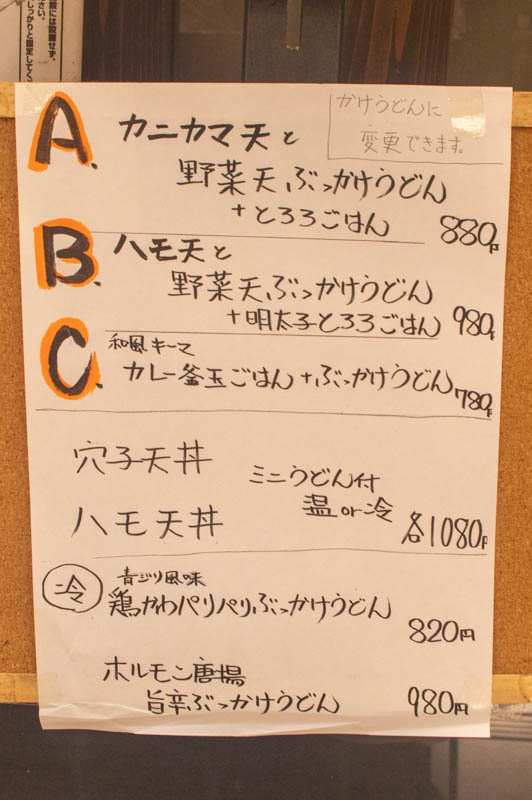 には設備せず、
ださい。
しっかりと固定してく
かけうどんに
変更できます。
A. カニカマ天と
野菜天ぶっかけうどん
+とろろごはん 880円
B. ハモ天と
野菜天ぶっかけうどん
+明太子とろろごはん 980円
C. 和風キーマ
カレー釜玉ごはん+ぶっかけうどん 780円
穴子天丼
ミニうどん付
温or冷
ハモ天丼
各1080円
冷 青ジソ風味
鶏かわパリパリぶっかけうどん
820円
ホルモン唐揚
旨辛ぶっかけうどん 980円